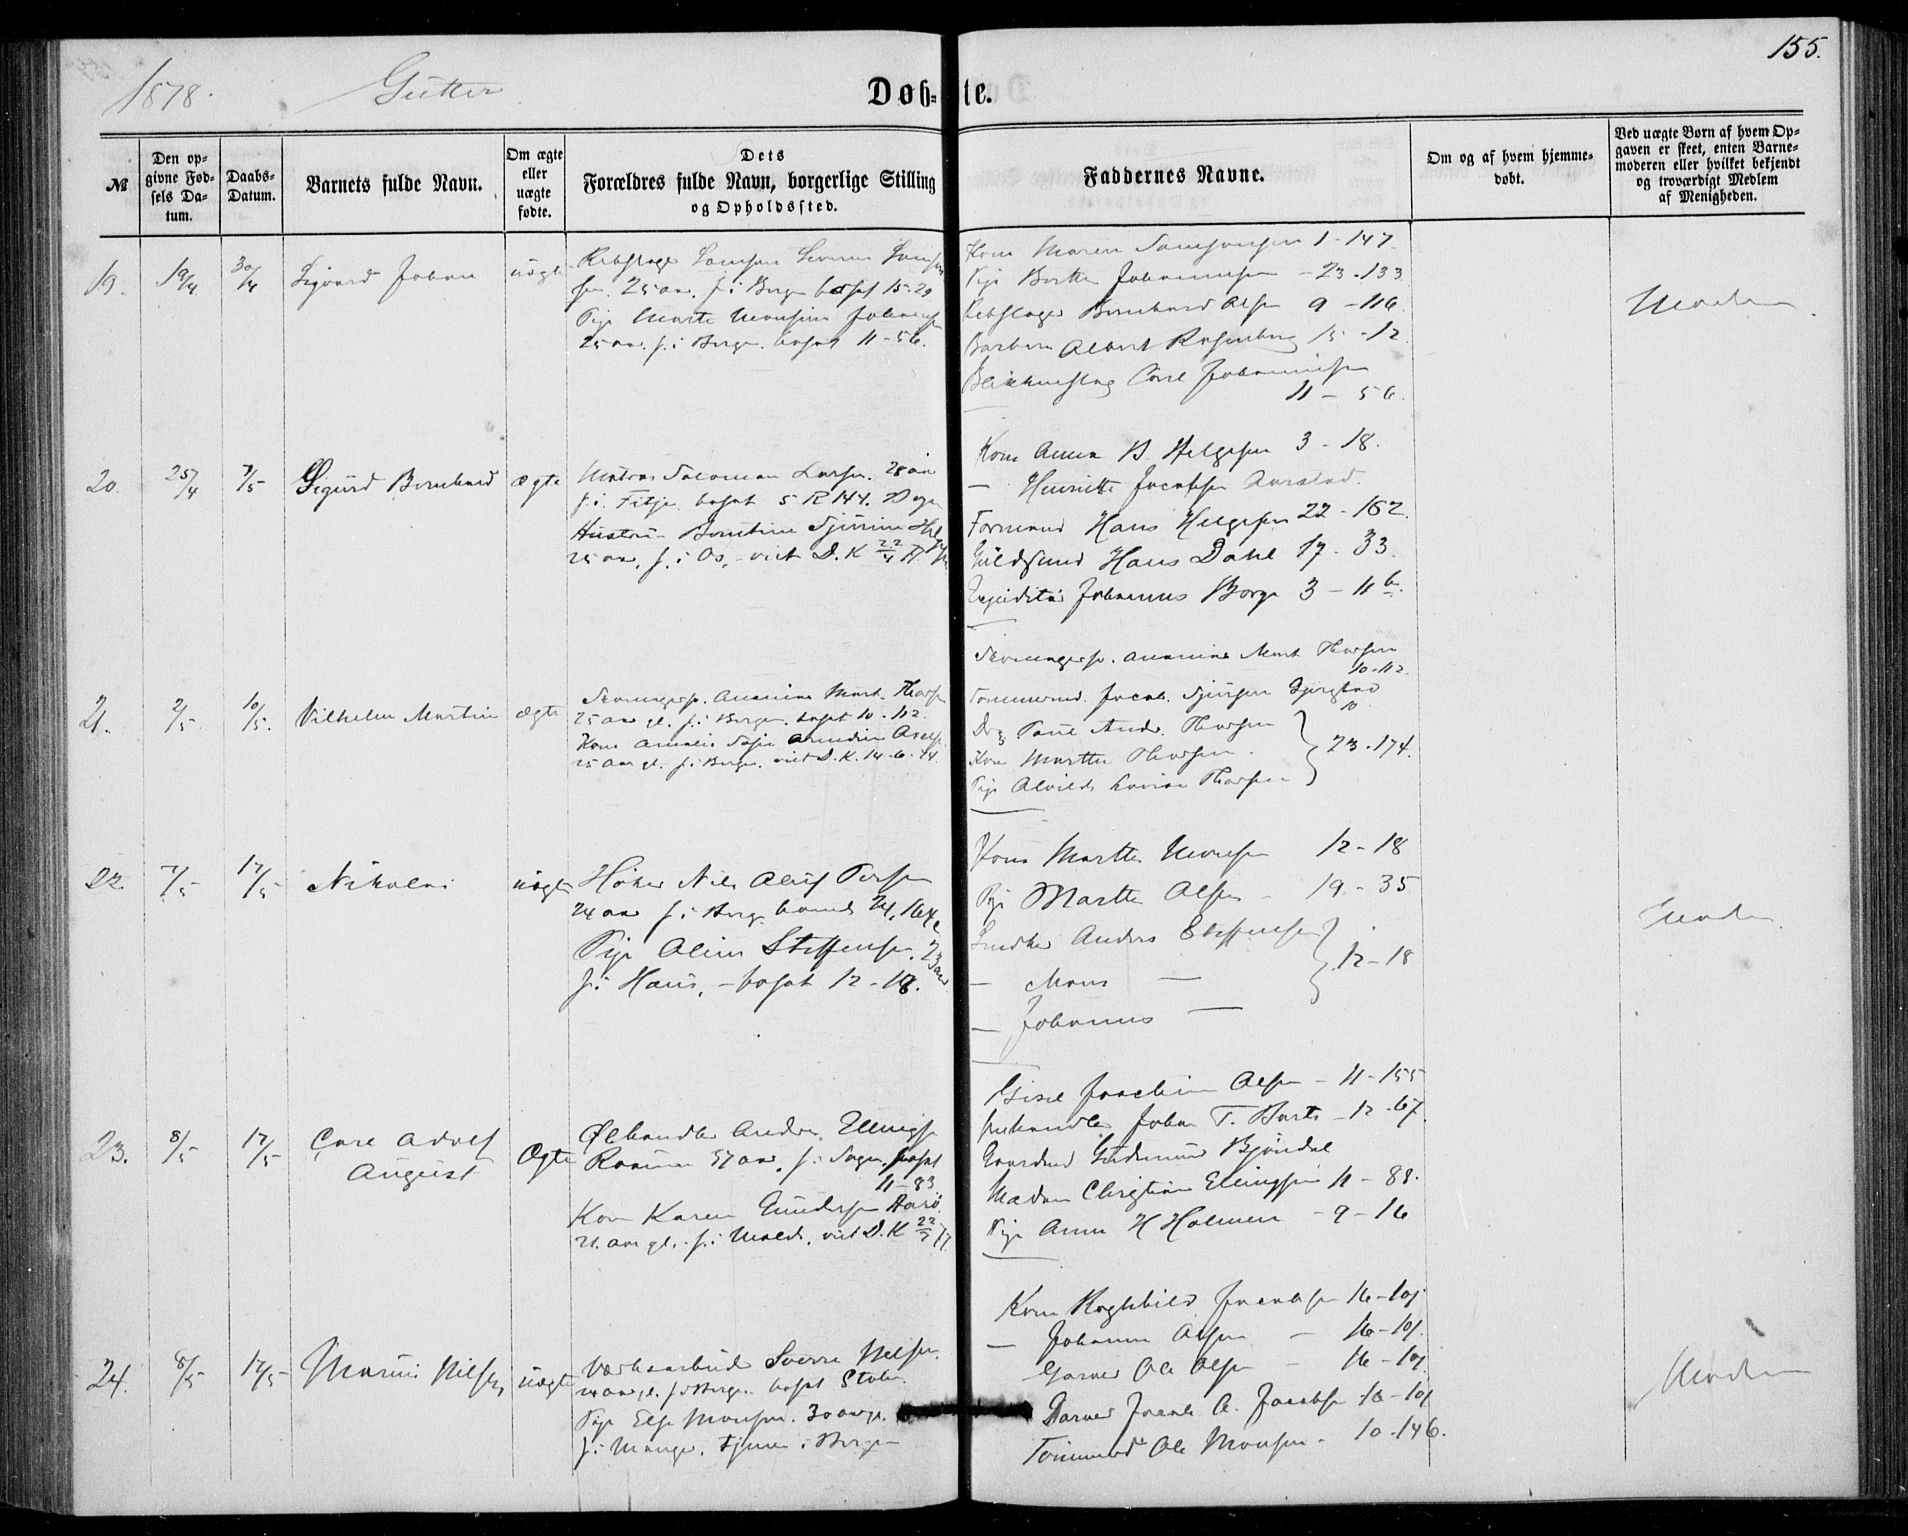 155.
1878. Gutter
Døb=te.
№
Den op=
givne Fød=
sels Da=
tum.
Daabs=
Datum.
Barnets fulde Navn.
Om ægte
eller
uægte
fødte.
Dets
Forældres fulde Navn, borgerlige Stilling
og Opholdssted.
Faddernes Navne.
Om og af hvem hjemme=
døbt.
Ved uægte Børn af hvem Op=
gaven er skeet, enten Barne=
moderen eller hvilket bekjendt
og troværdigt Medlem
af Menigheden.
19. 19/4 30/4 Sigvard Johan uægte
25 aar, f. i Bergen bosat 15-29
Pige Marte Monsine Johannes
25 aar. f. i Bergen. bosat 11-56.
Kone Maren Samsonsen 1-147
Pige Berthe Johannesen - 23-133
Rebslager Bernhard Olsen 9-116
Albert Rosenberg 15-12
Carl Johannesen
11-56.
Moderen
20. 25/4 7/5 Sigurd Bernhard ægte
Matros Salomon Larsen. 28 aar
f. i Fitje. bosat 5 R 144.
Hustru Berntine Sjurine Helgesen
25 aar, f. i Os, - viet D. K 22/4 77.
Kone Anna B. Helgesen 3-18.
— Henriette Jacobsen Aarstad.
Formand Hans Helgesen 22-162.
Guldsmed Hans Dahl 17-33.
Expeditør Johannes Borge 3-11b.
21. 2/5 10/5. Vilhelm Martin ægte
Skomagersv. Ananias Mart. Thorsen
25 aar gl. f. i Bergen. bosat 10-112.
Kone Amalie Sofie
25 aar gl. f. i Bergen. viet D. K. 14-6-74.
Skomagersv. Ananias Mart. Thorsen
10-112.
Tømmermd. Jacob Sjursen
Paul Andr. Thorsen
Kone Marthe Thorsen } 23-174.
Pige Alvilde Lovise Thorsen
22. 7/5 17/5 Nikolai uægte
Høker Nils Oluf Persen
24 aar f. i Berg. boende 24, 164c
Pige Oline Steffensen. 23 aar
f. i Haus, - bosat 12-18.
Kone Marthe Monsen 12-18
Pige Marthe Olsen - 19-35
Snedker Anders Steffensen
— Mons — } 12-18
— Johannes —
Moderen
23. 8/5 17/5 Carl Adolf
August
Ægte
Ølhandler Andr. Ellingsen
57 aar, f. i Sogn. bosat
11-83
Kone Karen Gundersen Aarø
21. aar gl. f. i Molde, viet D. K 22/5 77
Joachim Olsen - 11-155
Johan T. Barts - 12-67.
Gudmund Bjøndal
Madam Christian Ellingsen 11-88.
Pige Anna H Holmen - 9-16
24. 8/5 17/5 Marius Nilsen uægte
Værksarbeider Sverre Nilsen.
24 aar gl. f. i Bergen bosat Stølen.
Pige Else Monsen. 30 aar gl.
f. i Manger, tjener i Bergen
Kone Raghild Jacobsen 16-101
— Johanna Olsen — 16-101.
Garver Ole Olsen — 16-101
Garver Jacob A. Jacobsen 16-101
Tømmermd Ole Monsen - 10-146.
Moderen